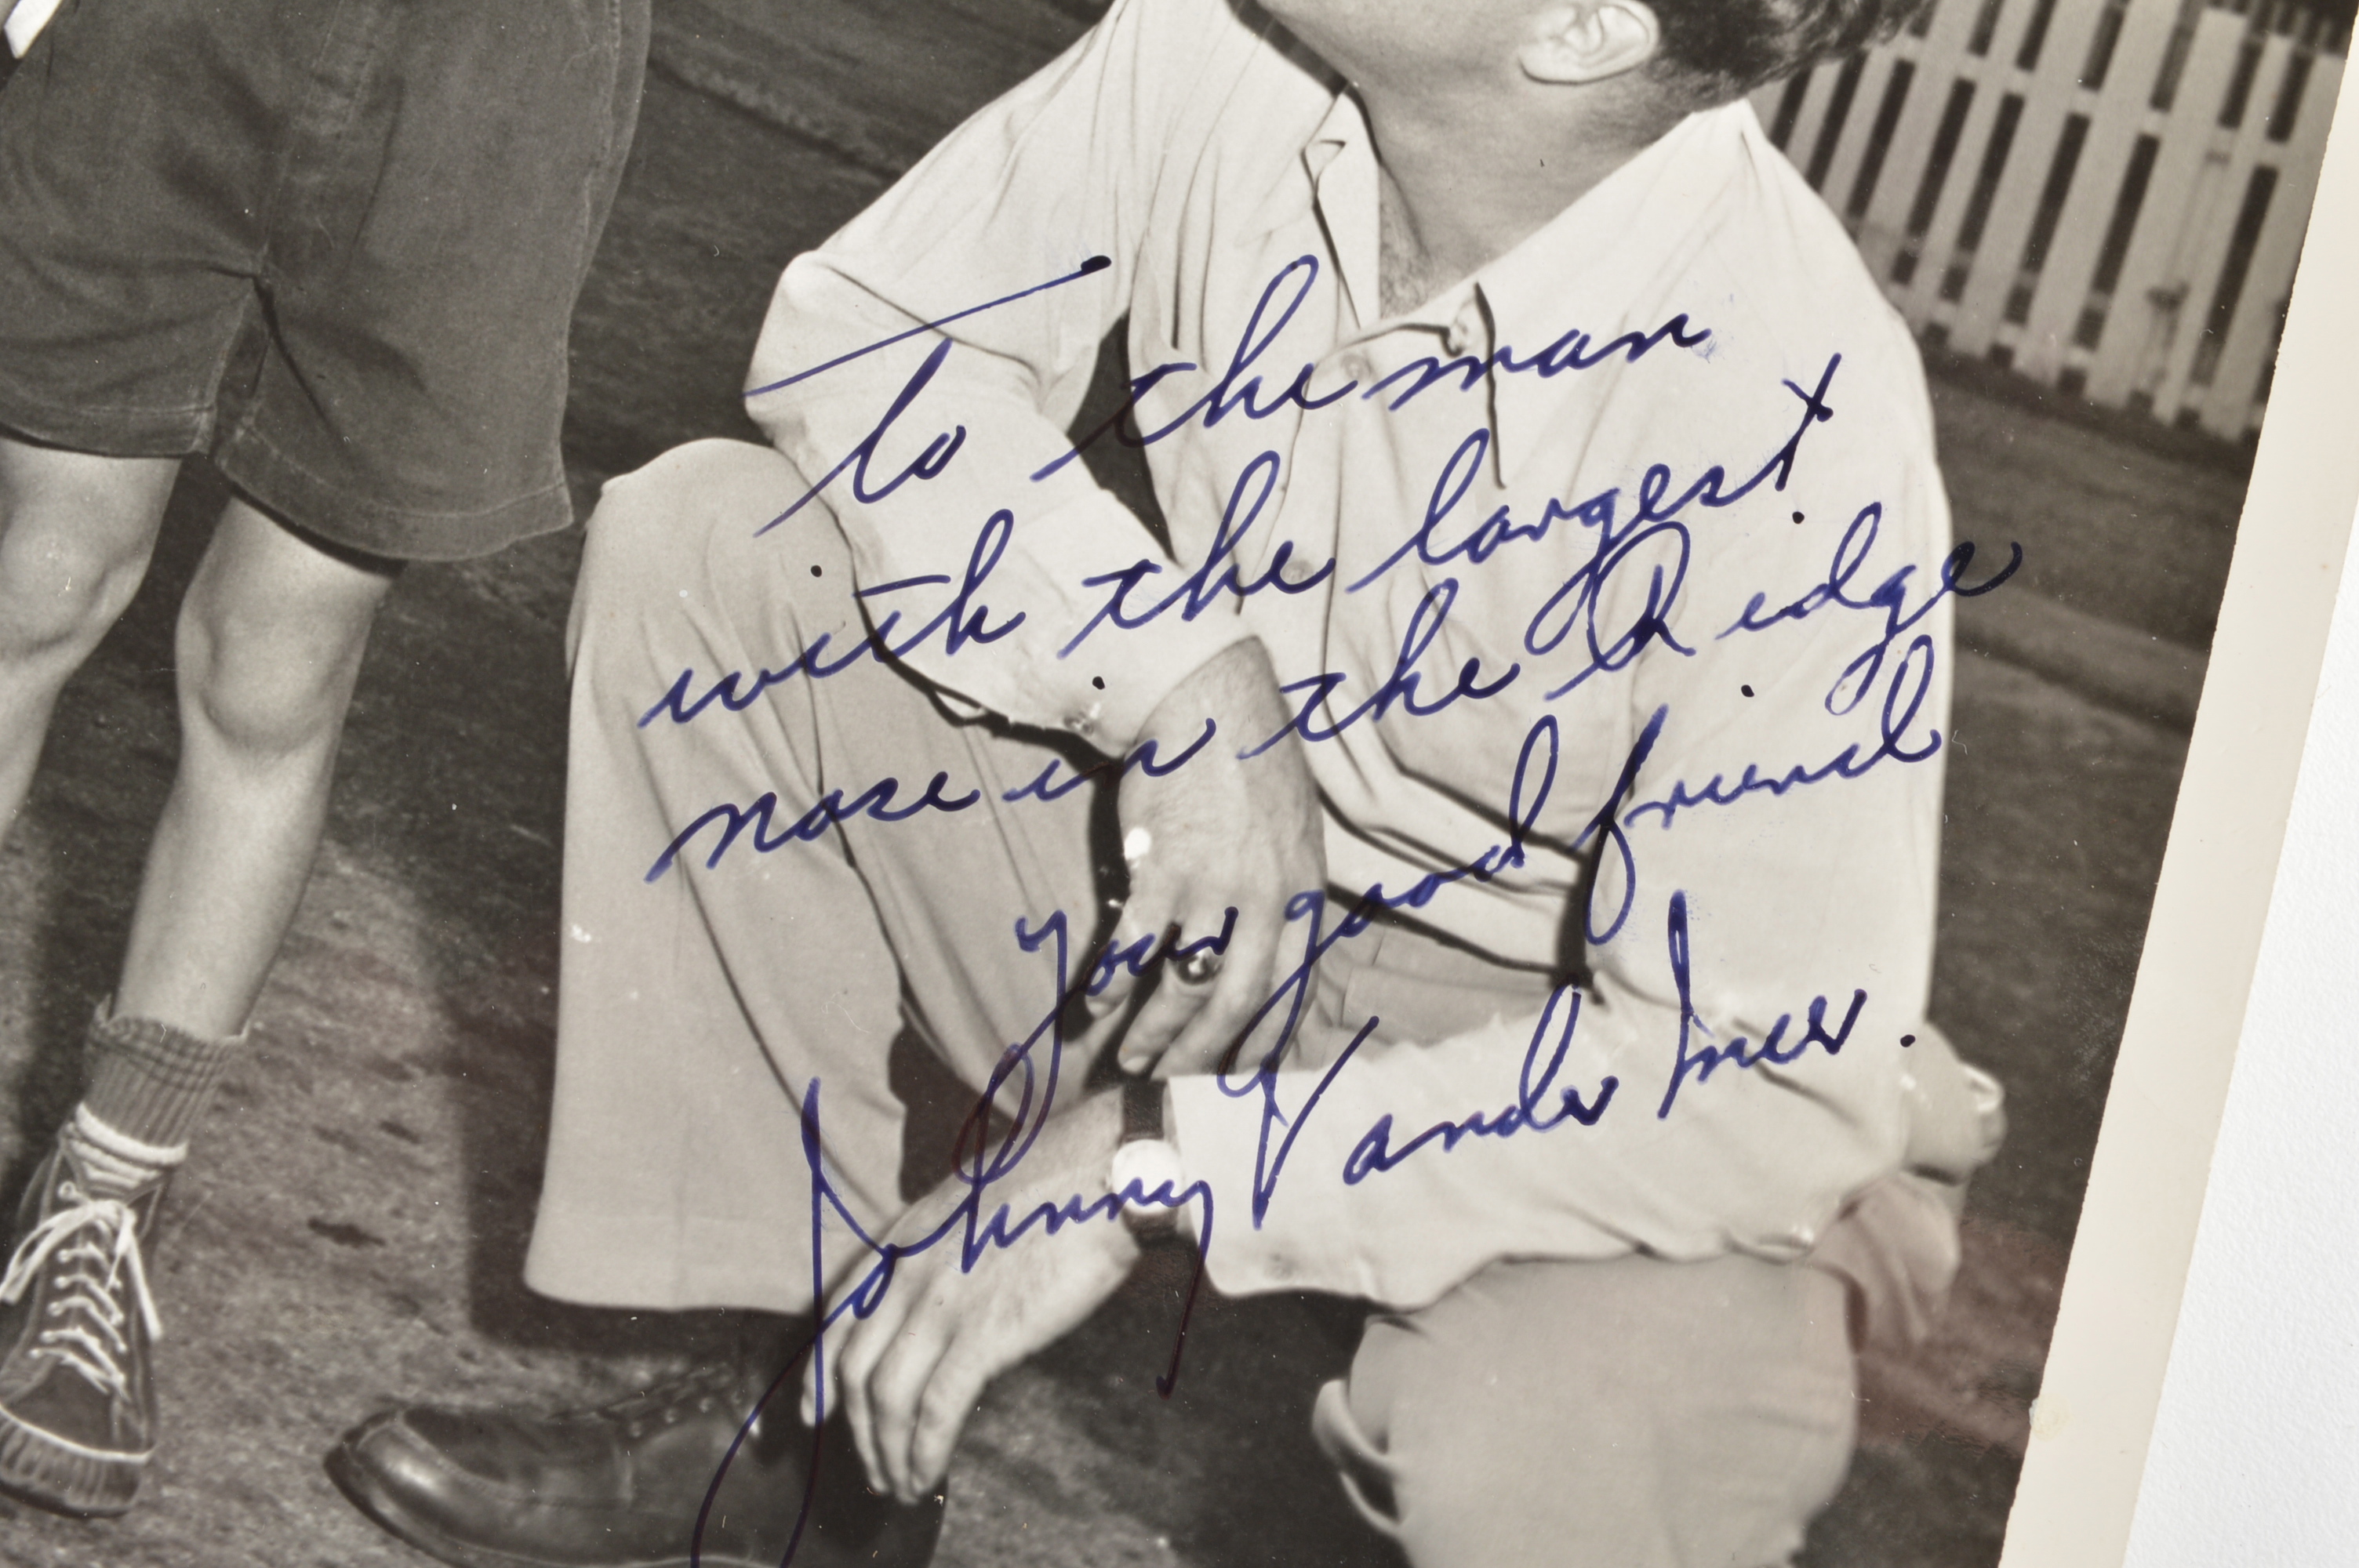 To the man
with the largest
nose in the Ridge
Your good friend
Johnny Vander Meer.